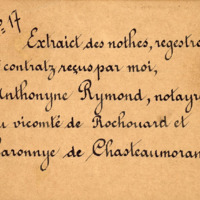 No 17
Extraict des nothes, regestre
contratz reçus par moi,
nthonyne Rymond, notayr
u vicomté de Rochouard et
aronnye de Chasteaumoran